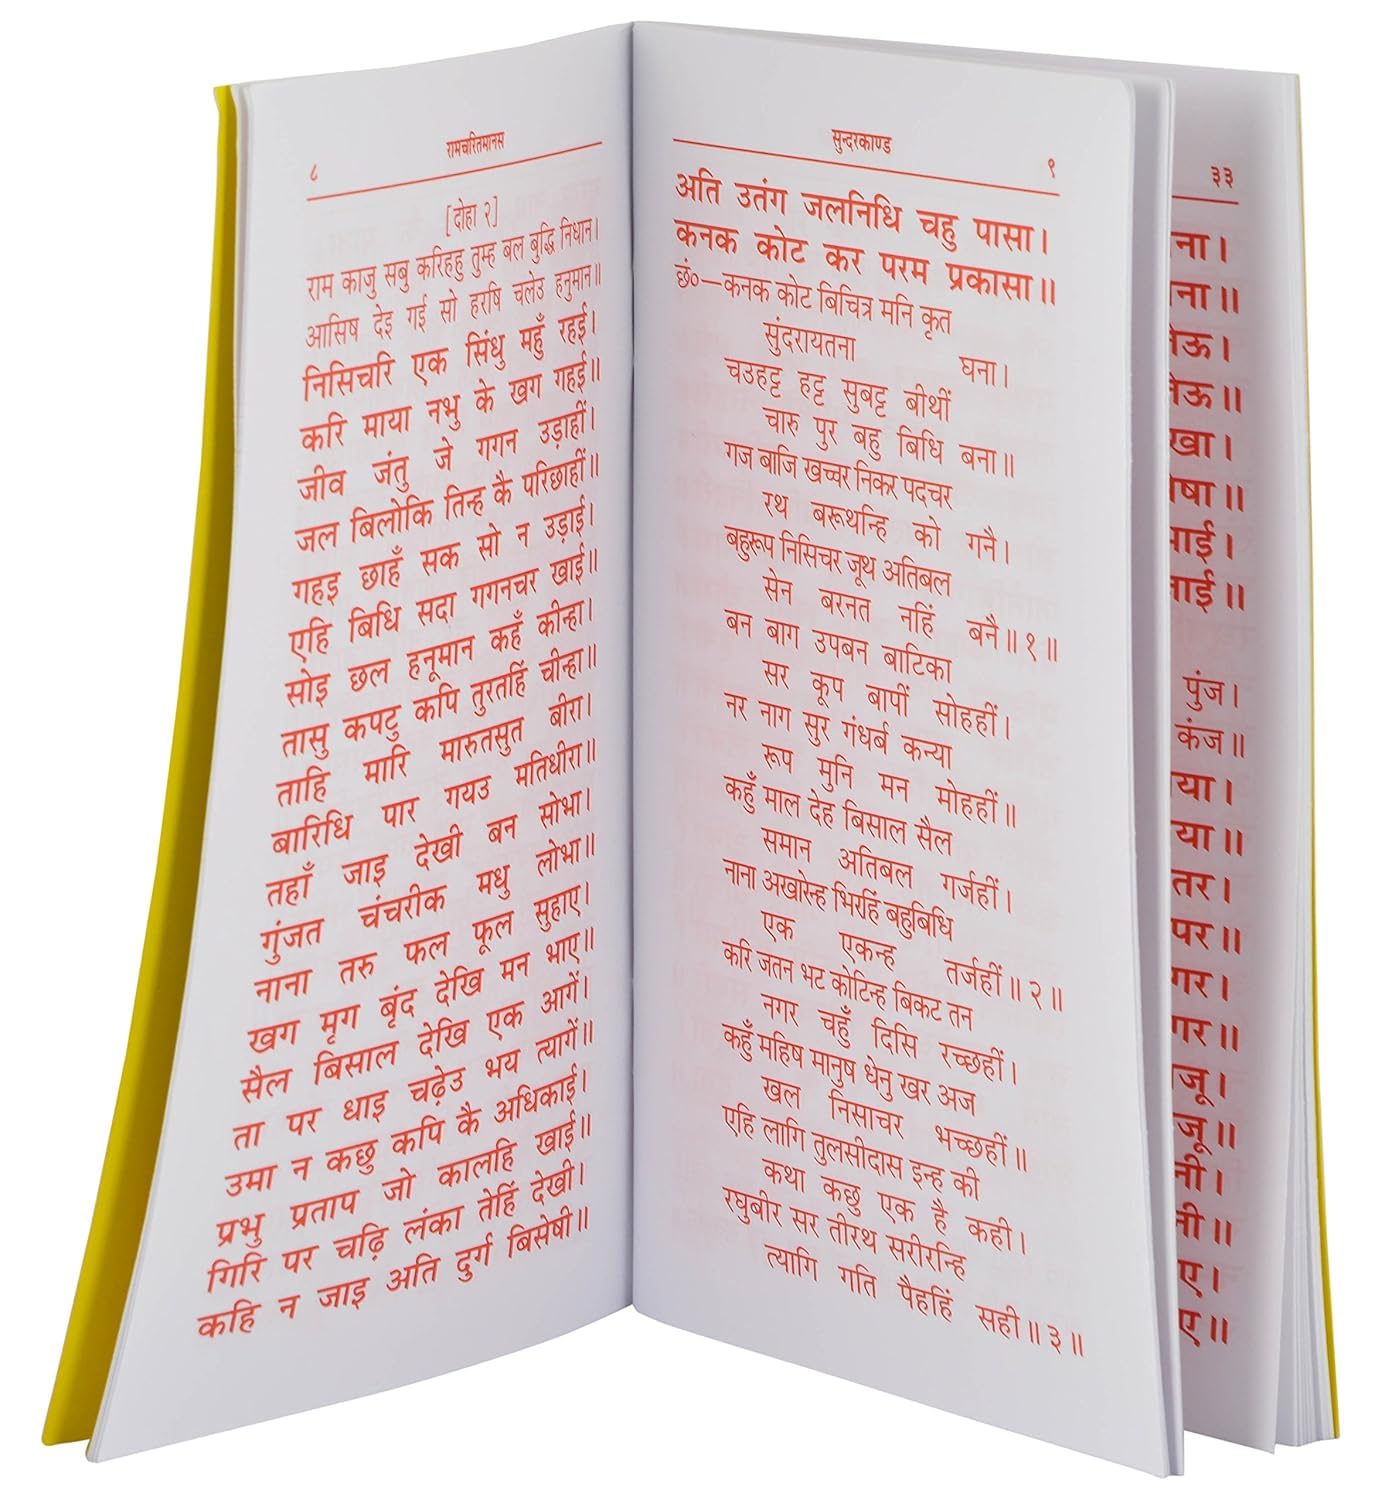 रामचरितमानस
८
[दोहा २]
राम काजु सबु करिहहु तुम्ह बल बुद्धि निधान।
आसिष देइ गई सो हरषि चलेउ हनुमान॥
निसिचरि एक सिंधु महुँ रहई।
करि माया नभु के खग गहई॥
जीव जंतु जे गगन उड़ाहीं।
जल बिलोकि तिन्ह कै परिछाहीं॥
गहइ छाहँ सक सो न उड़ाई।
एहि बिधि सदा गगनचर खाई॥
सोइ छल हनूमान कहँ कीन्हा।
तासु कपटु कपि तुरतहिं चीन्हा॥
ताहि मारि मारुतसुत बीरा।
बारिधि पार गयउ मतिधीरा॥
तहाँ जाइ देखी बन सोभा।
गुंजत चंचरीक मधु लोभा॥
नाना तरु फल फूल सुहाए।
खग मृग बृंद देखि मन भाए॥
सैल बिसाल देखि एक आगें।
ता पर धाइ चढ़ेउ भय त्यागें॥
उमा न कछु कपि कै अधिकाई।
प्रभु प्रताप जो कालहि खाई॥
गिरि पर चढ़ि लंका तेहिं देखी।
कहि न जाइ अति दुर्ग बिसेषी॥
सुन्दरकाण्ड
९
अति उतंग जलनिधि चहु पासा।
कनक कोट कर परम प्रकासा॥
छं०—कनक कोट बिचित्र मनि कृत
सुंदरायतना घना।
चउहट्ट हट्ट सुबट्ट बीथीं
चारु पुर बहु बिधि बना॥
गज बाजि खच्चर निकर पदचर
रथ बरूथन्हि को गनै।
बहुरूप निसिचर जूथ अतिबल
सेन बरनत नहिं बनै॥१॥
बन बाग उपबन बाटिका
सर कूप बापीं सोहहीं।
नर नाग सुर गंधर्ब कन्या
रूप मुनि मन मोहहीं॥
कहुँ माल देह बिसाल सैल
समान अतिबल गर्जहीं।
नाना अखारेन्ह भिरहिं बहुबिधि
एक एकन्ह तर्जहीं॥२॥
करि जतन भट कोटिन्ह बिकट तन
नगर चहुँ दिसि रच्छहीं।
कहुँ महिष मानुष धेनु खर अज
खल निसाचर भच्छहीं॥
एहि लागि तुलसीदास इन्ह की
कथा कछु एक है कही।
रघुबीर सर तीरथ सरीरन्हि
त्यागि गति पैहहिं सही॥३॥
३३
पुंज।
कंज॥